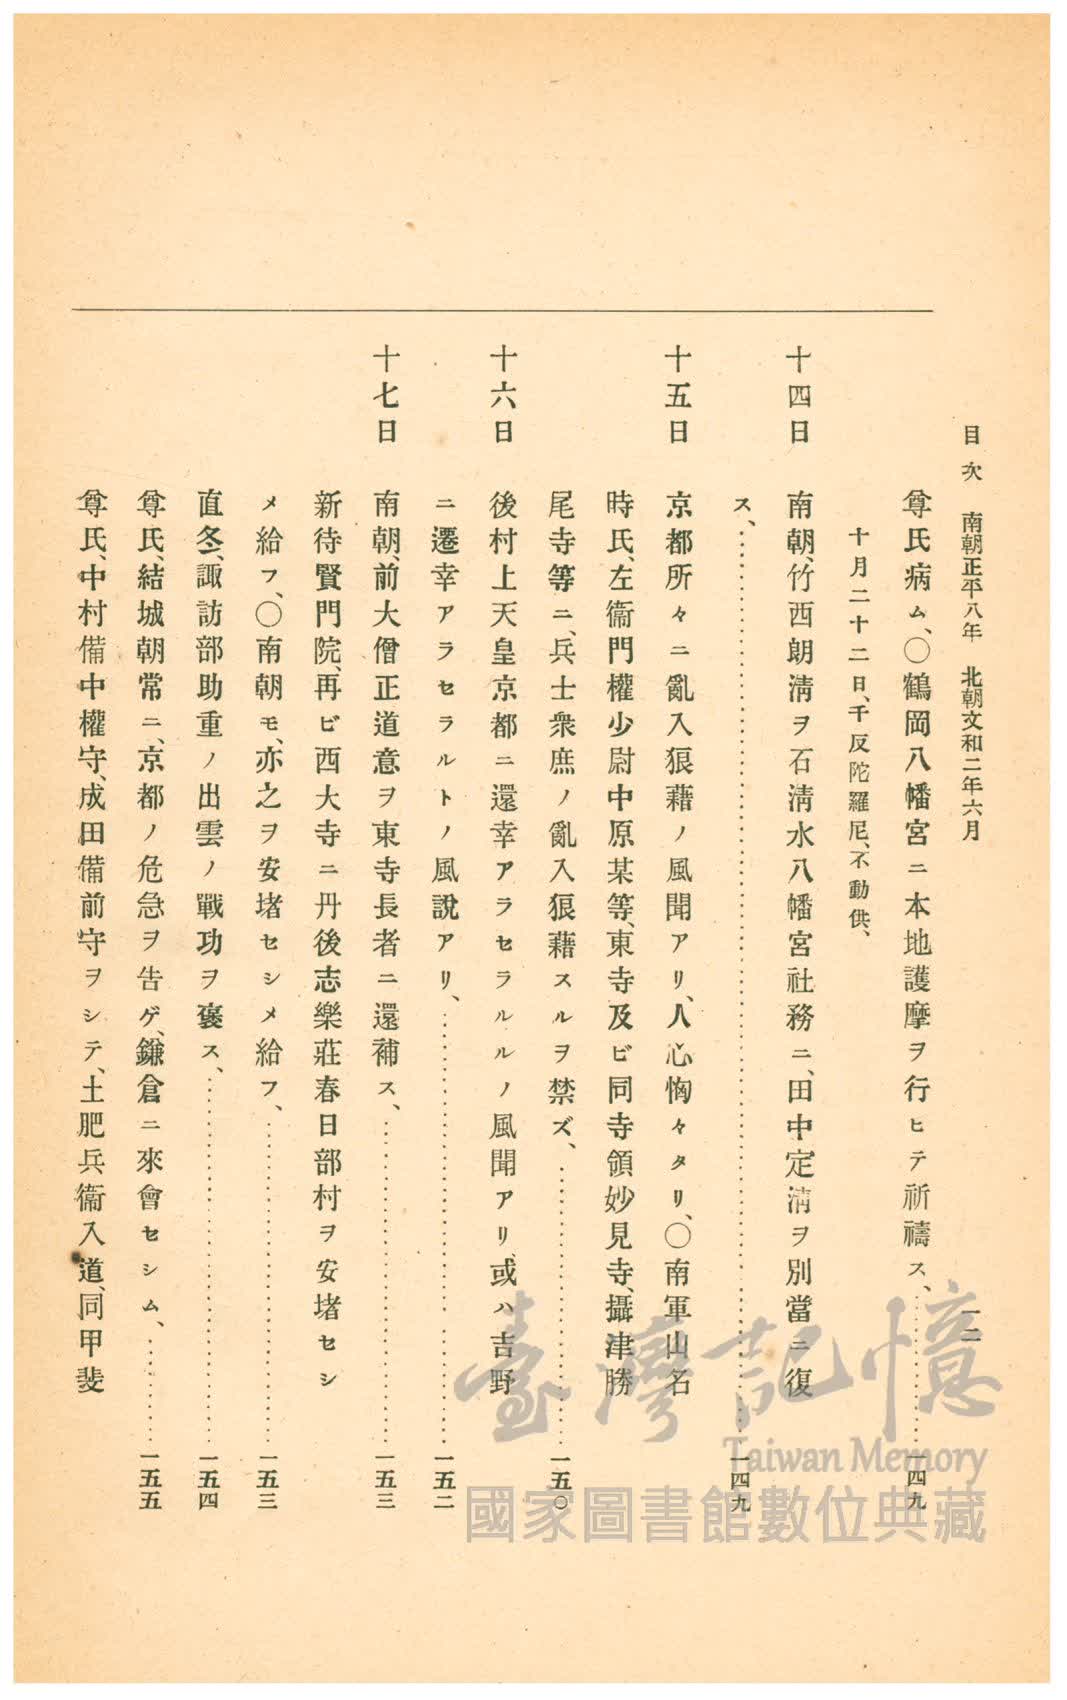 目次　南朝正平八年　北朝文和二年六月　一二
尊氏病ム、〇鶴岡八幡宮ニ本地護摩ヲ行ヒテ祈禱ス、……一四九
十月二十二日、千反陀羅尼、不動供、
十四日　南朝、竹西朗淸ヲ石淸水八幡宮社務ニ、田中定淸ヲ別當ニ復
ス、……一四九
十五日　京都所々ニ亂入狼藉ノ風聞アリ、人心恟々タリ、〇南軍山名
時氏、左衞門權少尉中原某等、東寺及ビ同寺領妙見寺、攝津勝
尾寺等ニ、兵士衆庶ノ亂入狼藉スルヲ禁ズ、……一五〇
十六日　後村上天皇京都ニ還幸アラセラルルノ風聞アリ、或ハ吉野
ニ遷幸アラセラルトノ風說アリ、……一五二
十七日　南朝、前大僧正道意ヲ東寺長者ニ還補ス、……一五三
新待賢門院、再ビ西大寺ニ丹後志樂莊春日部村ヲ安堵セシ
メ給フ、〇南朝モ、亦之ヲ安堵セシメ給フ、……一五三
直冬、諏訪部助重ノ出雲ノ戰功ヲ褒ス、……一五四
尊氏、結城朝常ニ、京都ノ危急ヲ吿ゲ、鎌倉ニ來會セシム、……一五五
尊氏、中村備中權守、成田備前守ヲシテ、土肥兵衞入道、同甲斐
臺灣記憶
Taiwan Memory
國家圖書館數位典藏